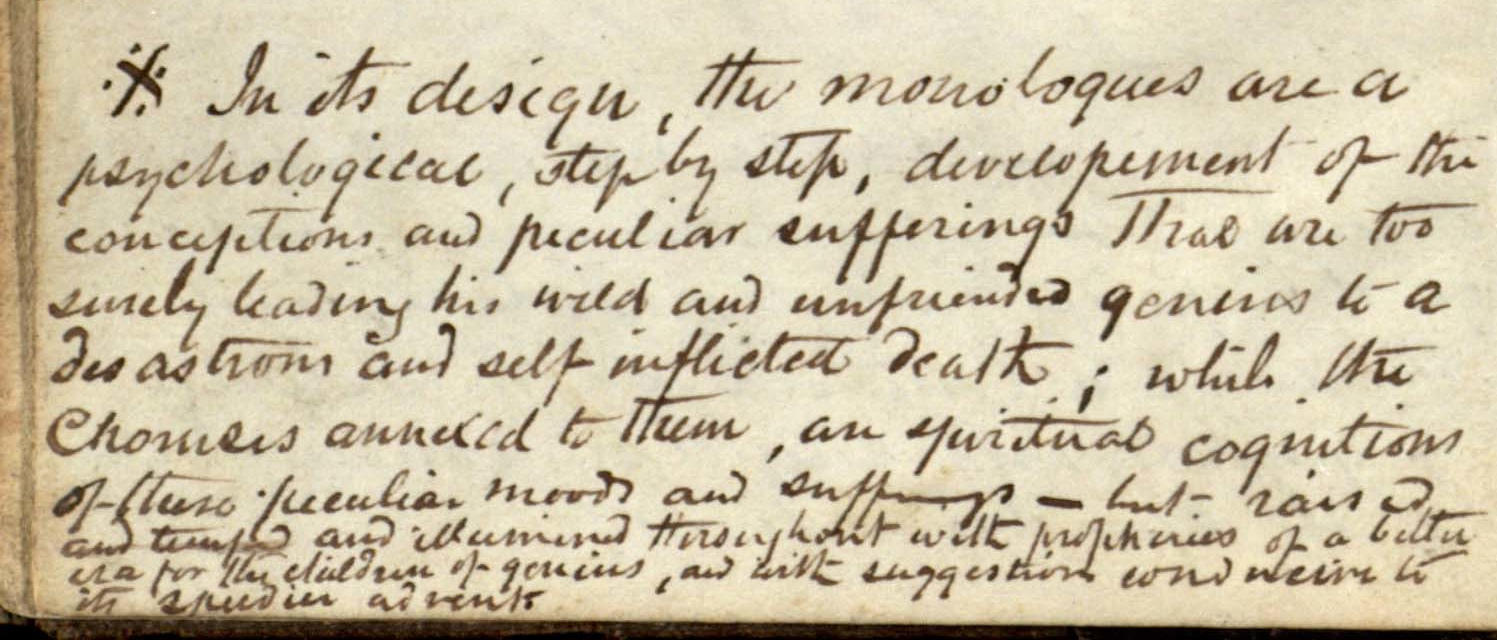 ※ In its design, the monologues are a
psychological, step by step, developement of the
conceptions and peculiar sufferings that are too
surely leading his wild and unfriended genius to a
disastrous and self inflicted death; while the
Choruses annexed to them, are spiritual cognitions
of these peculiar moods and sufferings — but raised
and and illumined throughout with prophecies of a better
era for the children of genius, and with suggestions conducive to
its speedier advent